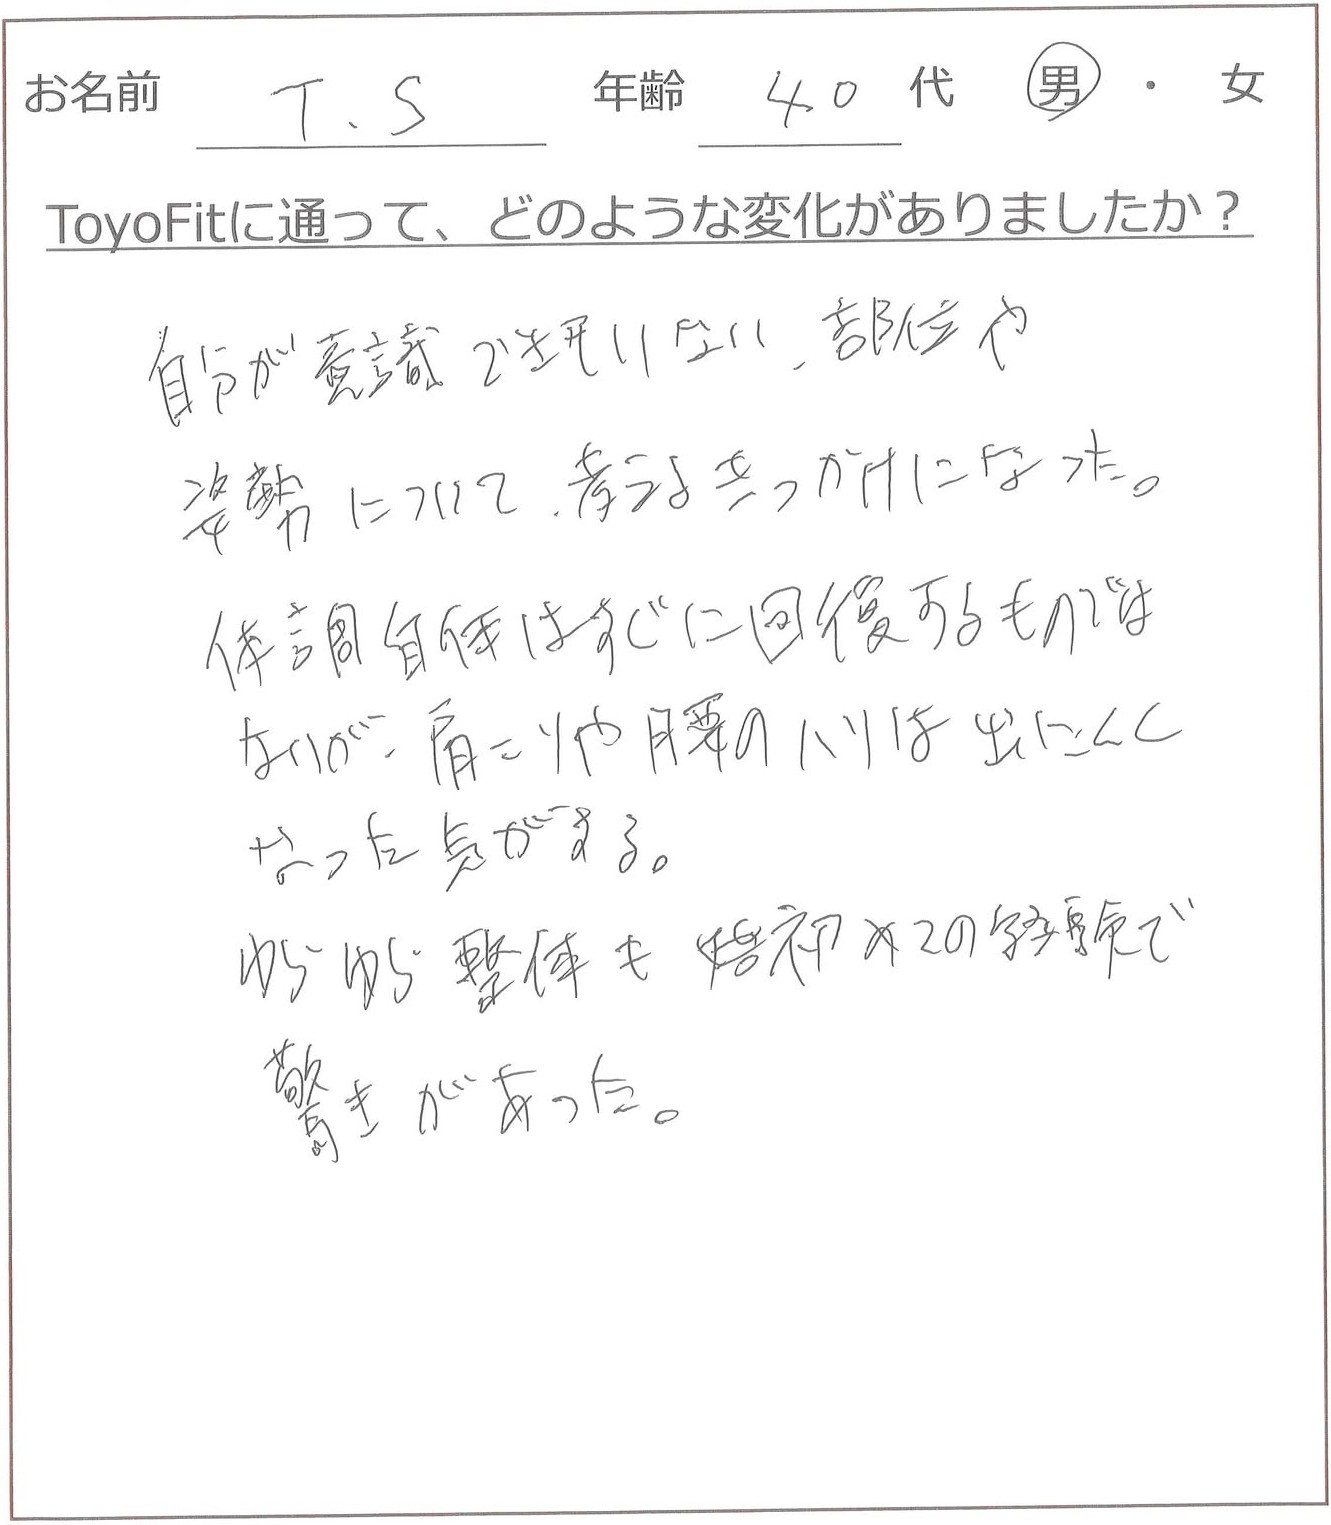 お名前 T.S 年齢 40 代 男 ・ 女
ToyoFitに通って、どのような変化がありましたか？
自分が意識できていない、部位や
姿勢について、考えるきっかけになった。
体調自体はすぐに回復するものでは
ないが、肩こりや腰のハリは出にくく
なった気がする。
ゆらゆら整体も 初めての経験で
驚きがあった。